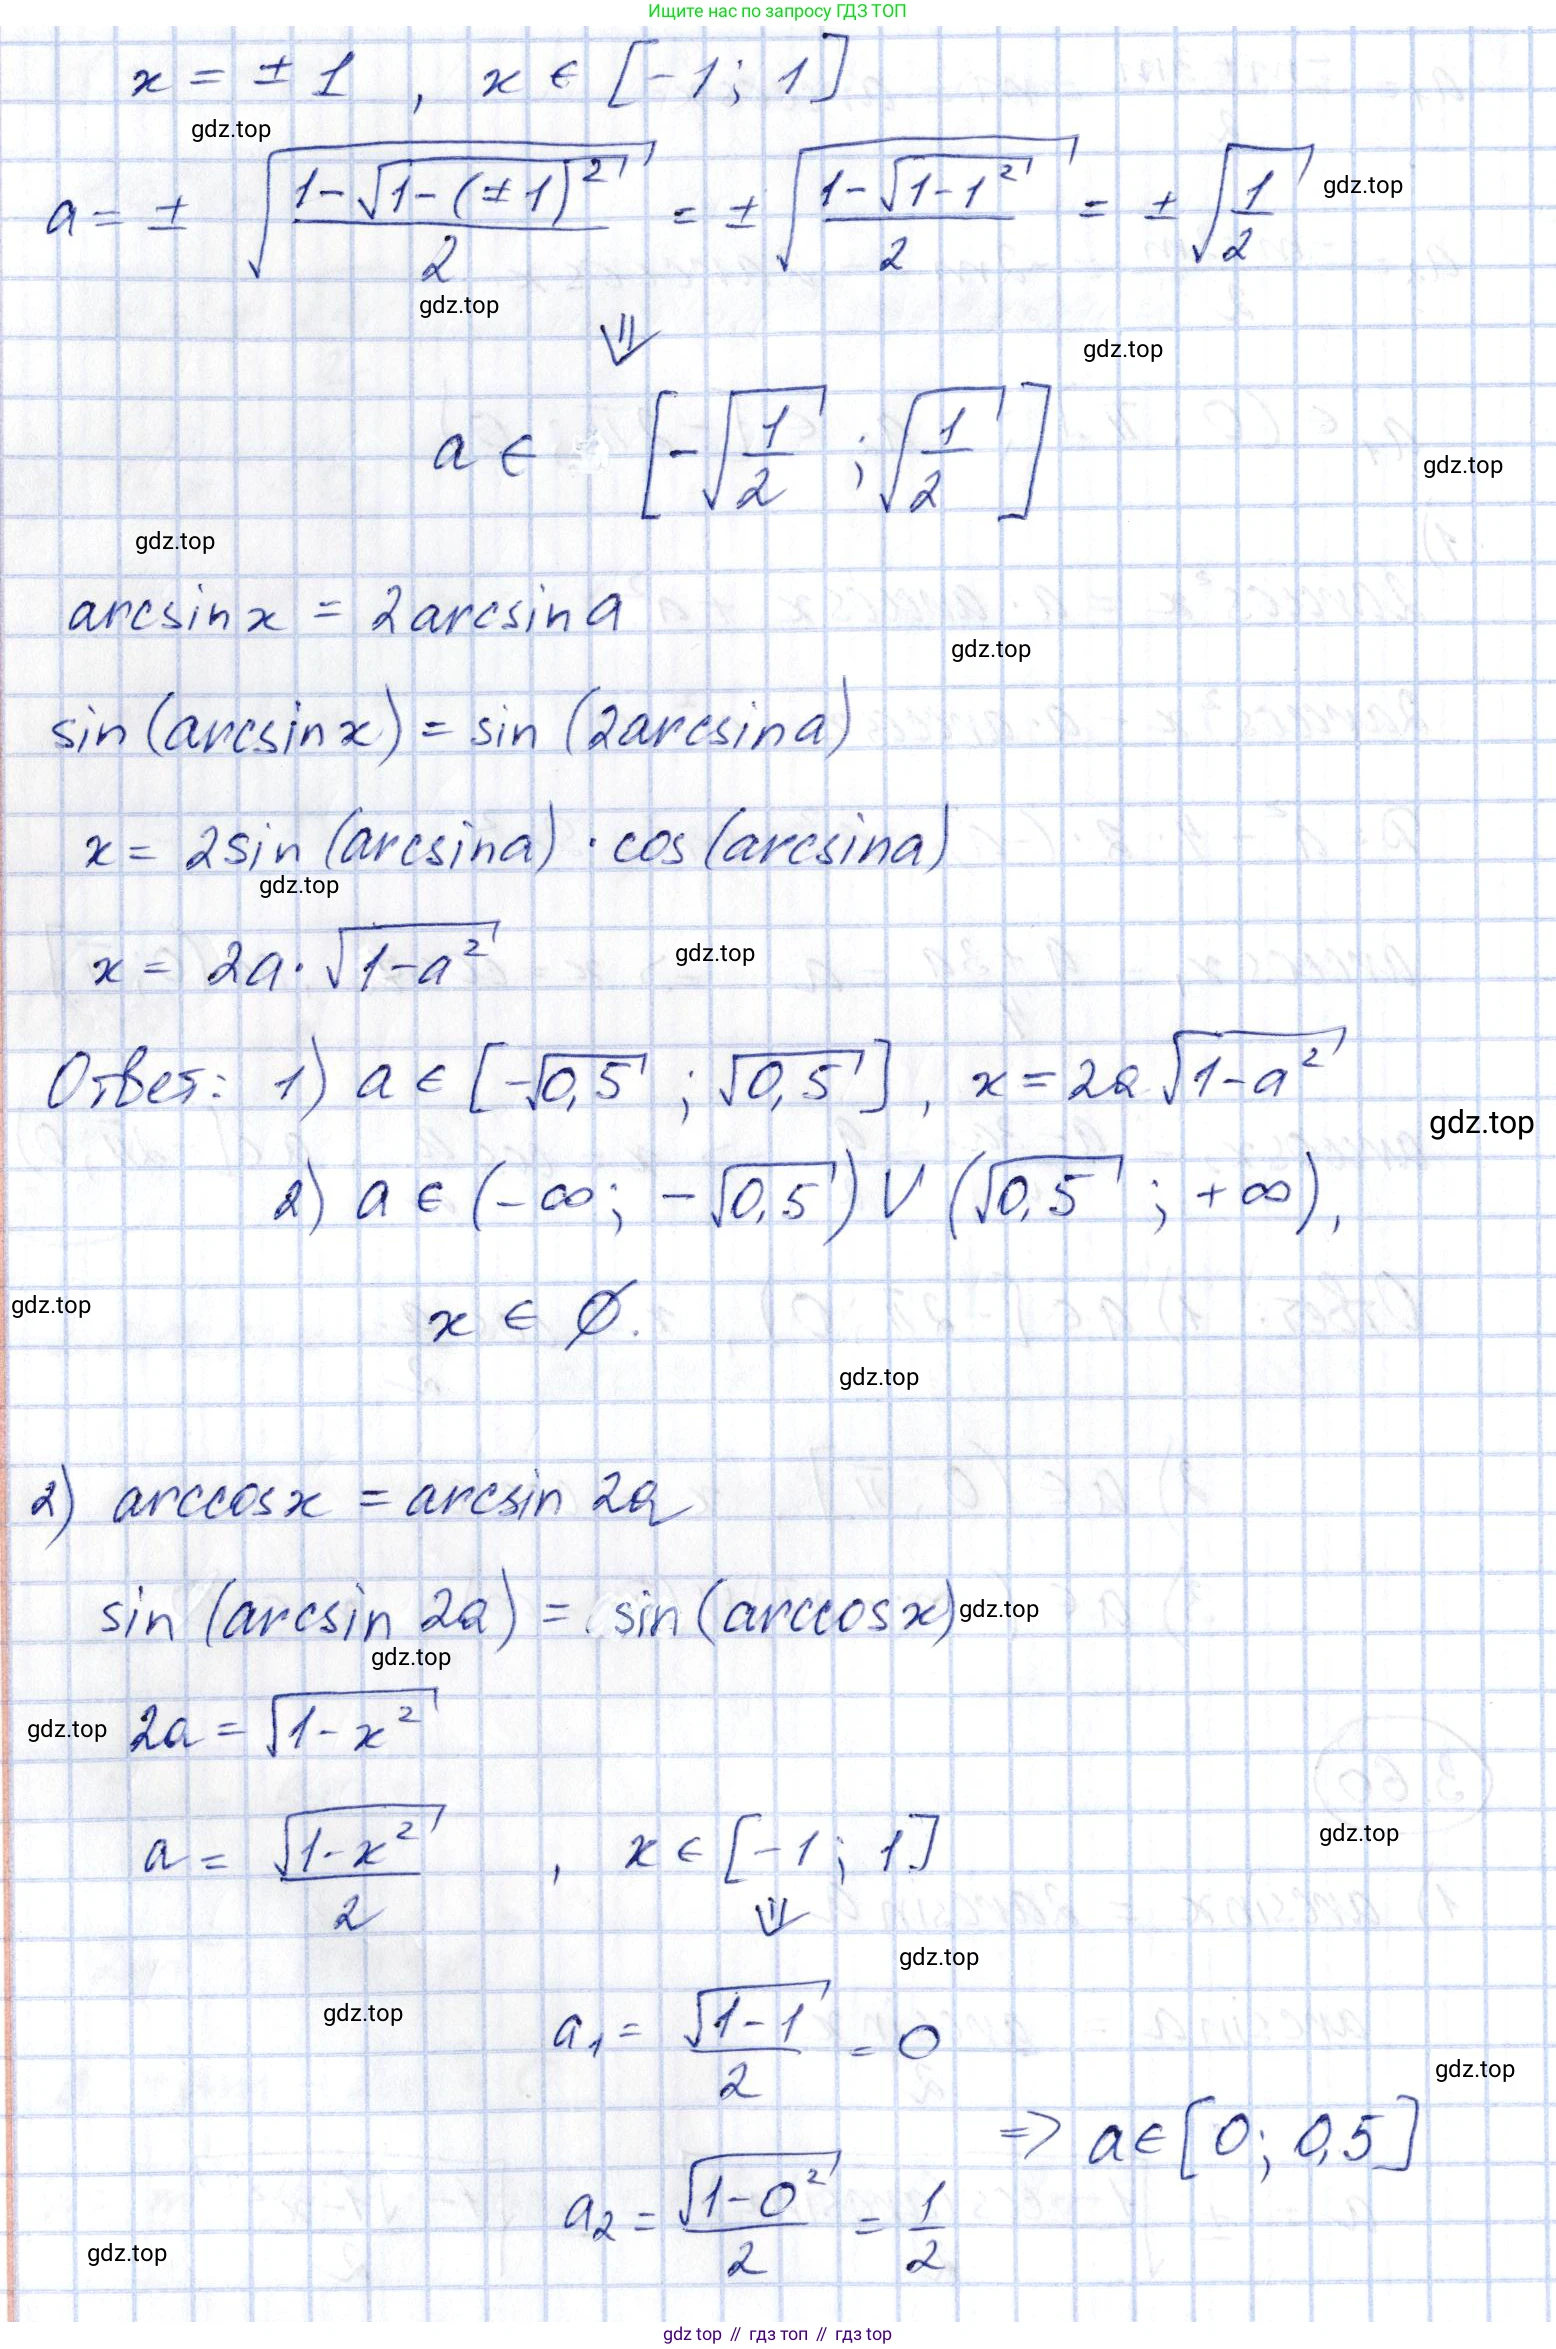 Ищите нас по запросу ГДЗ ТОП
x = ± 1 , x ∈ [-1; 1]
gdz.top
a = ± √((1-√(1-(±1)²))/2) = ± √((1-√(1-1²))/2) = ± √(1/2) gdz.top
gdz.top
⇓
gdz.top
a ∈ [-√(1/2) ; √(1/2)]
gdz.top
gdz.top
arcsin x = 2arcsin a
gdz.top
sin (arcsin x) = sin (2arcsin a)
x = 2sin (arcsin a) · cos (arcsin a)
gdz.top
x = 2a · √(1-a²) gdz.top
Ответ: 1) a ∈ [-√0,5 ; √0,5] , x = 2a √(1-a²)
gdz.top
2) a ∈ (-∞; -√0,5) ∪ (√0,5 ; +∞),
gdz.top
x ∈ ∅.
gdz.top
2) arccos x = arcsin 2a
sin (arcsin 2a) = sin (arccos x) gdz.top
gdz.top
gdz.top 2a = √(1-x²)
a = √(1-x²)/2 , x ∈ [-1; 1] gdz.top
⇓
gdz.top
gdz.top a₁ = √(1-1)/2 = 0
gdz.top
⇒ a ∈ [0; 0,5]
a₂ = √(1-0²)/2 = 1/2
gdz.top
gdz top // гдз топ // gdz top